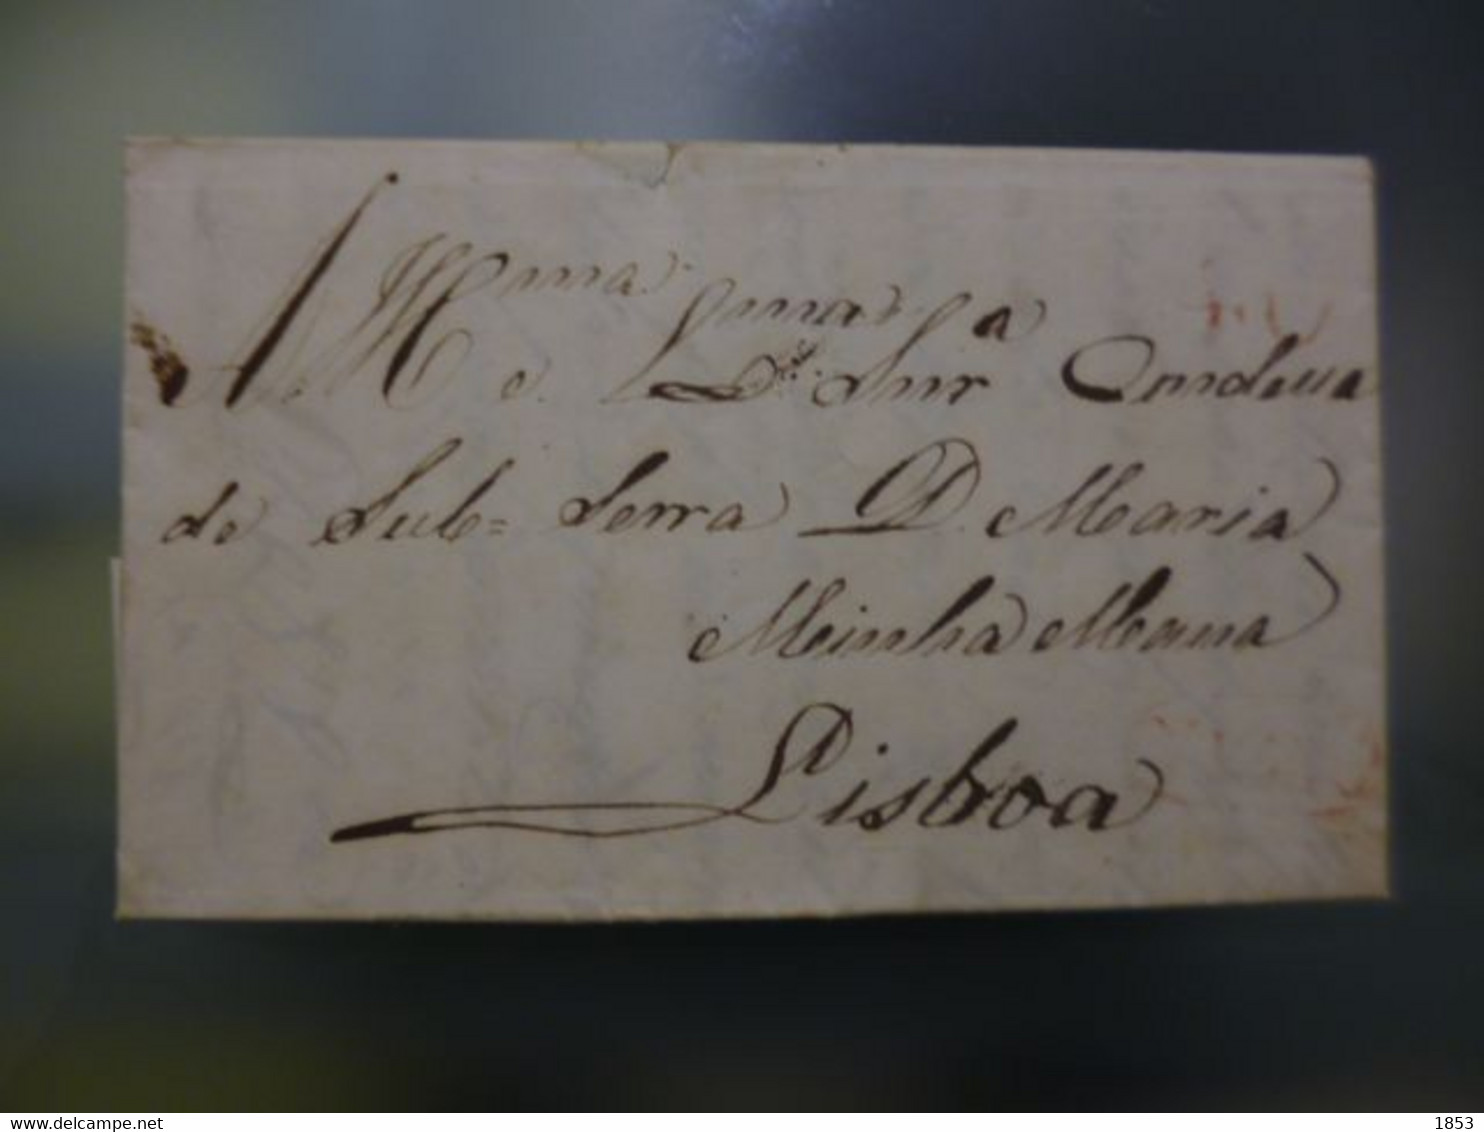 A Illma e Exma Snra Condessa
de Sub=Serra D. Maria
Minha Mana
Lisboa
www.delcampe.net
1853